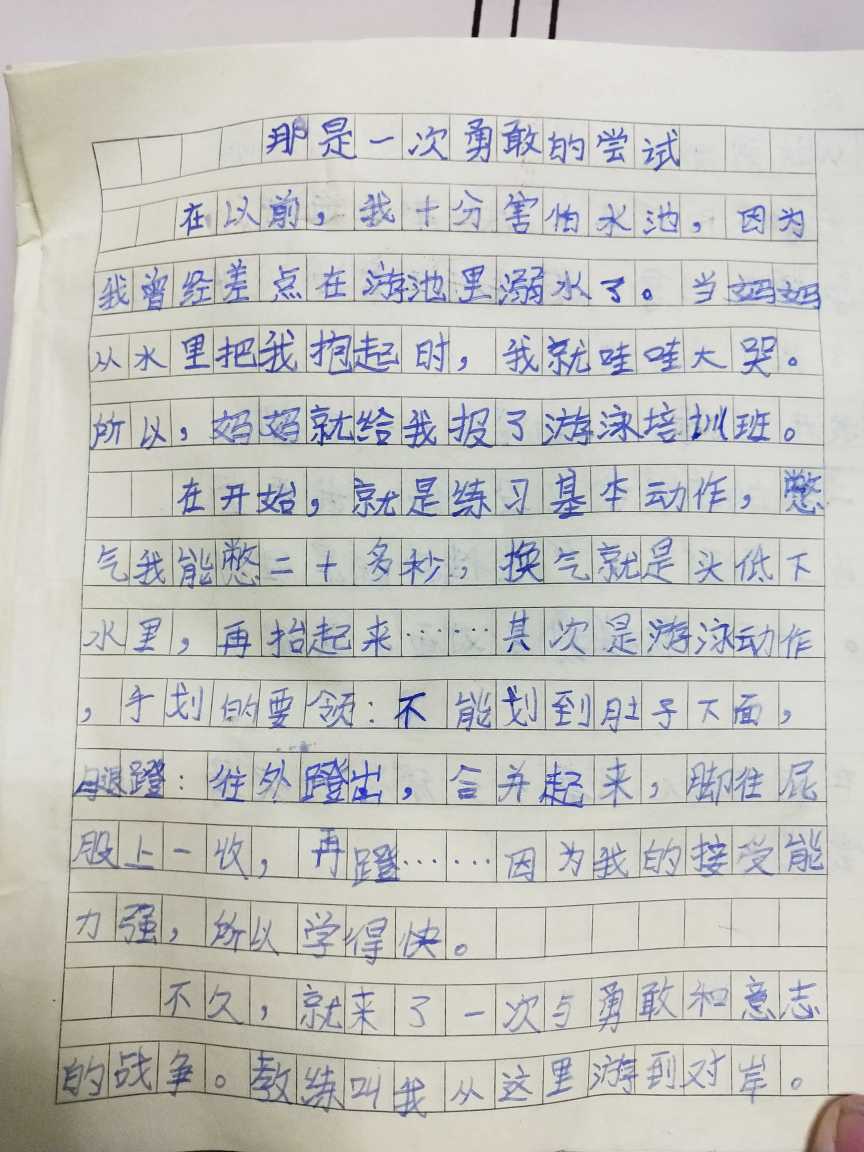 那是一次勇敢的尝试
在以前，我十分害怕水池，因为
我曾经差点在游池里溺水了。当妈妈
从水里把我抱起时，我就哇哇大哭。
所以，妈妈就给我报了游泳培训班。
在开始，就是练习基本动作，憋
气我能憋二十多秒，换气就是头低下
水里，再抬起来……其次是游泳动作
，手划的要领：不能划到肚子下面，
蹬：往外蹬出，合并起来，脚往屁
股上一收，再蹬……因为我的接受能
力强，所以学得快。
不久，就来了一次与勇敢和意志
的战争。教练叫我从这里游到对岸。